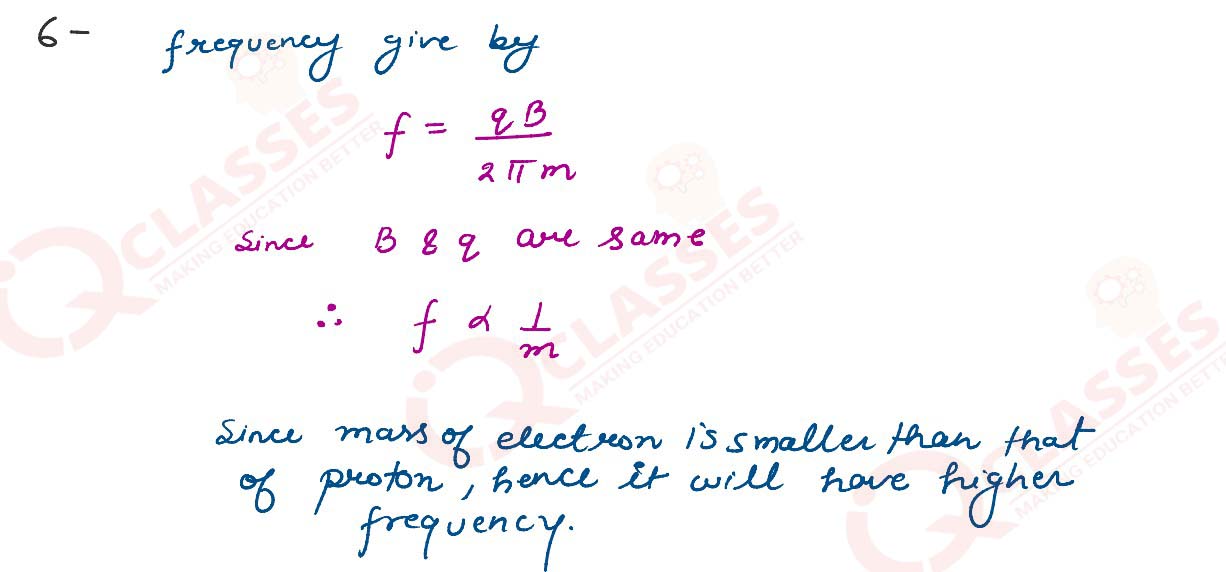 6- frequency give by
f = qB / 2πm
Since B & q are same
∴ f α 1/m
Since mass of electron is smaller than that
of proton, hence it will have higher
frequency.
CLASSES
MAKING EDUCATION BETTER
CLASSES
MAKING EDUCATION BETTER
CLASSES
MAKING EDUCATION BETTER